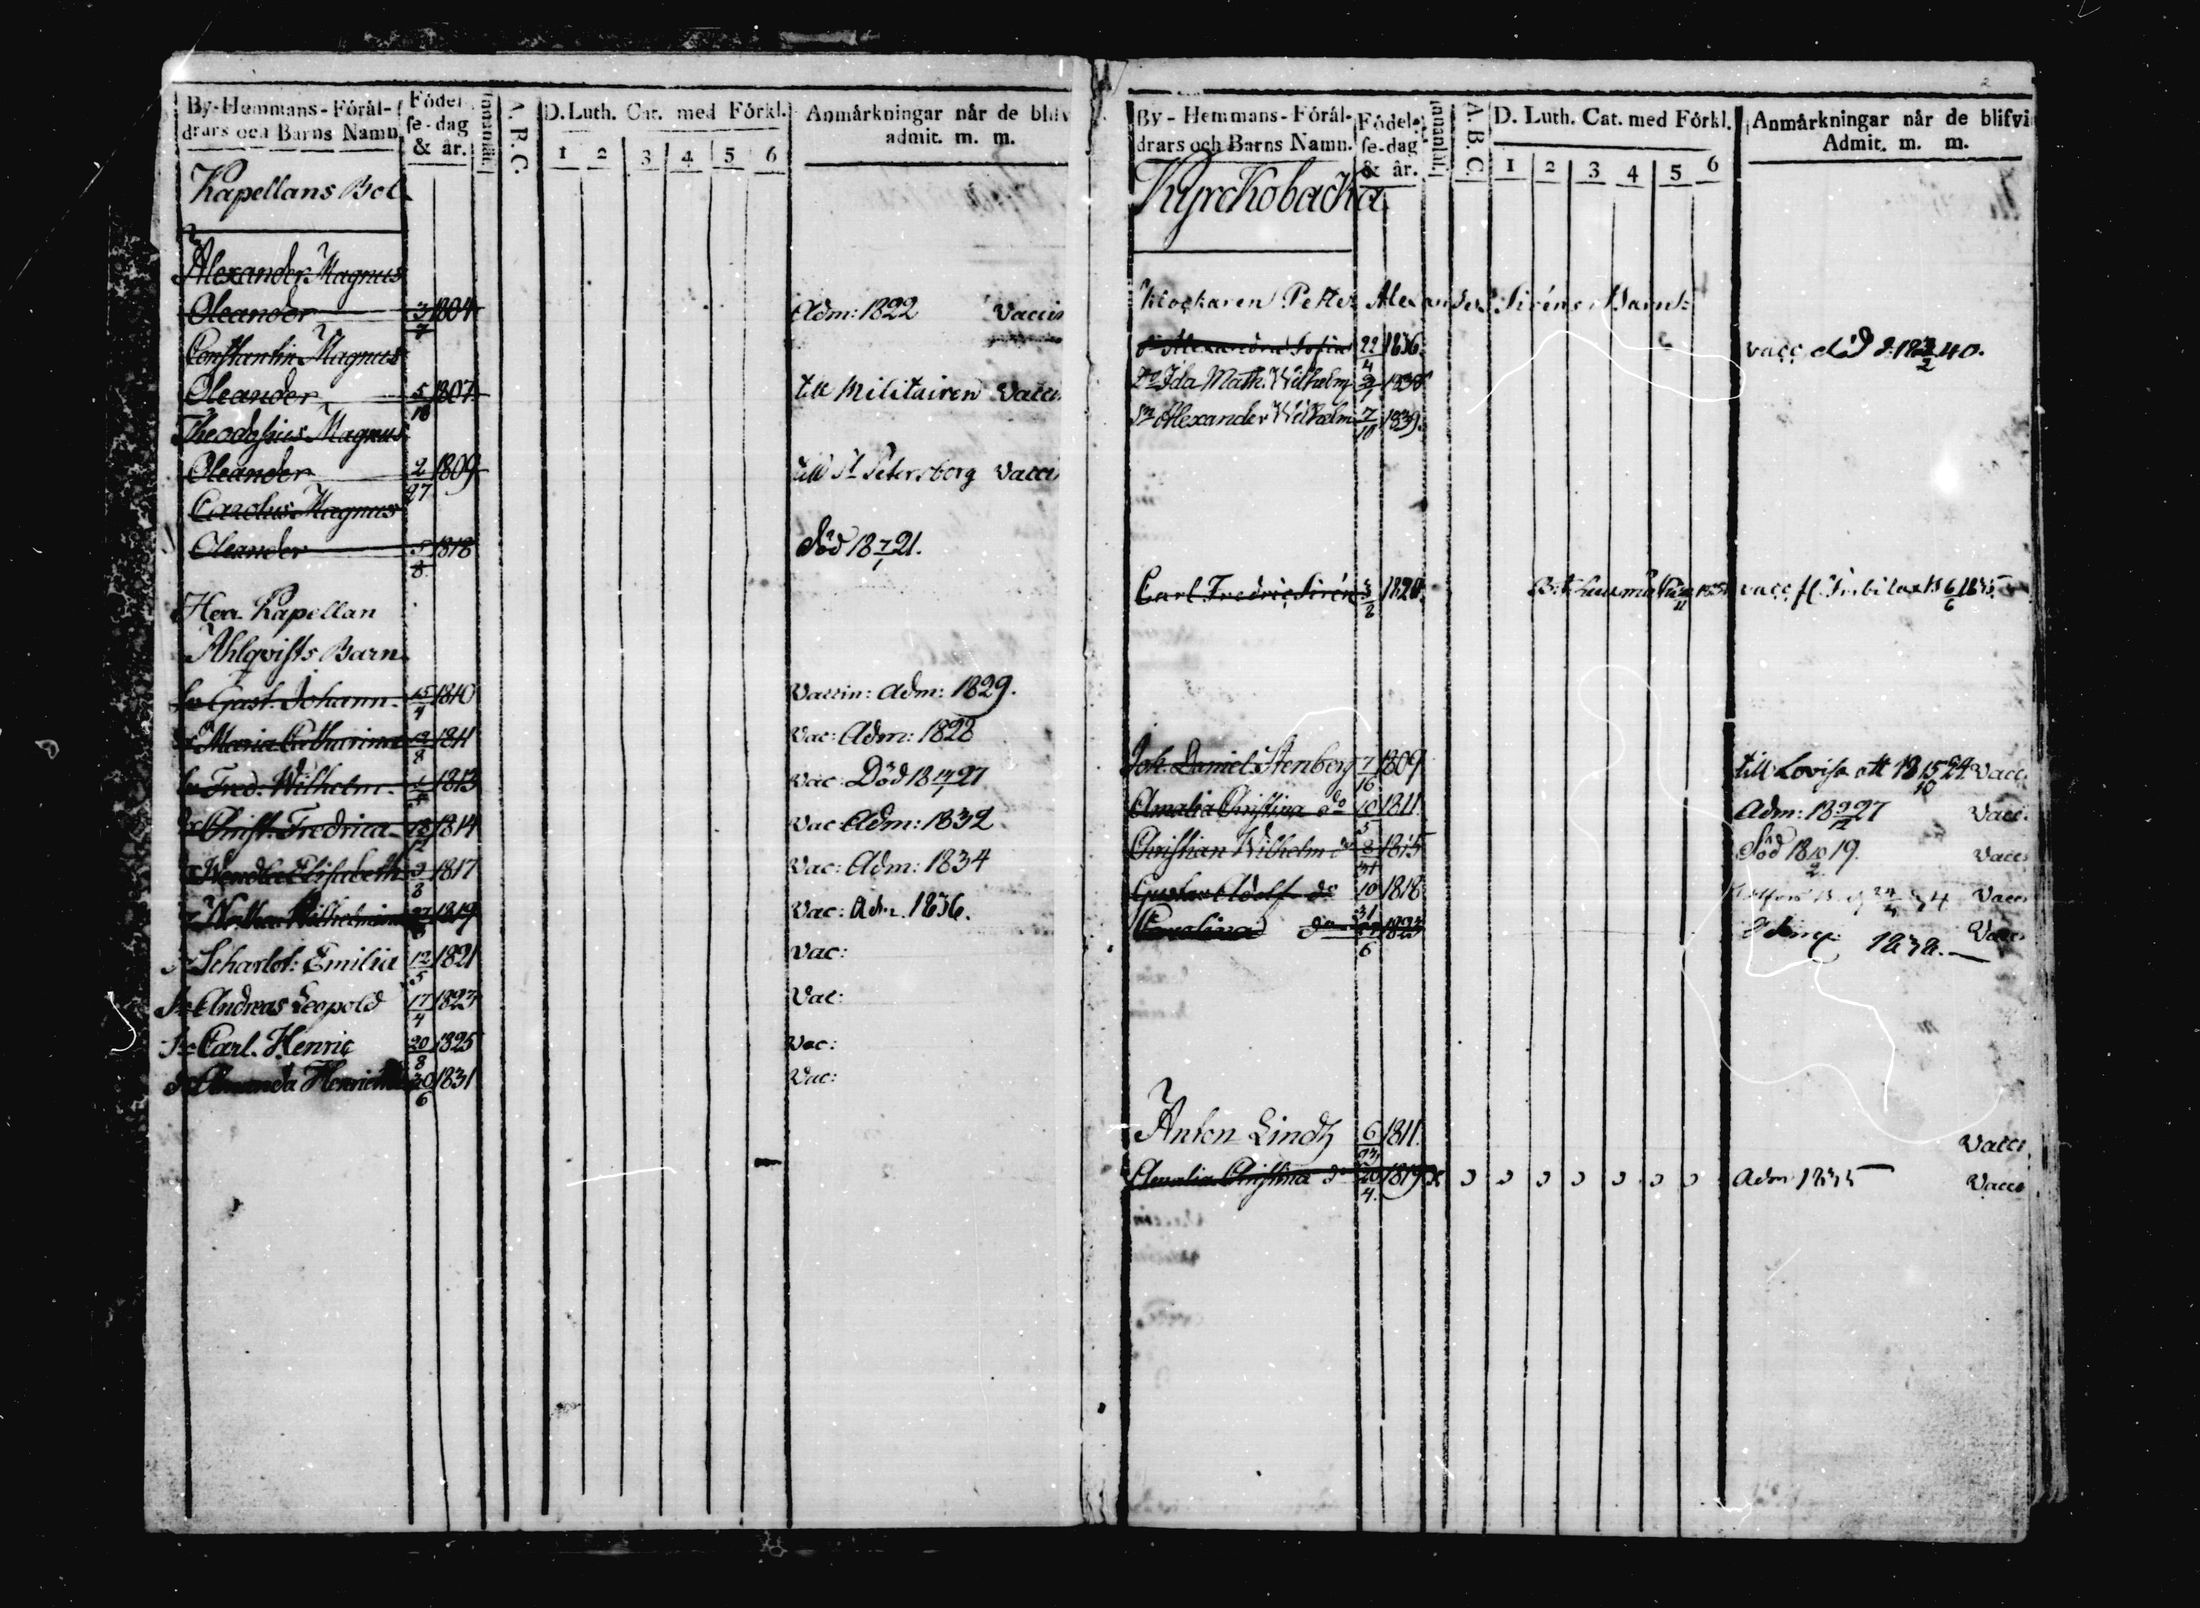 By-Hemmans-Förål- Födel- Innanläsn. A. B. C. D. Luth. Cat. med Förkl. Anmårkningar når de blifv
drars och Barns Namn. se-dag & år. 1 2 3 4 5 6 admit. m. m.
Kapellans Bol
Alexander Magnus
Oleander 3/7 1804 Adm: 1822 Vaccin
Constantin Magnus
Oleander 5/18 1807 till Militairen Vacci
Theodosius Magnus
Oleander 2/27 1809 till St Petersborg Vacci
Carolus Magnus
Oleander 5/8 1818 död 18 7/1 21.
Herr Kapellan
Ahlqvists Barn
Sn Gust. Johann. 15/4 1810 Vaccin: Adm: 1829.
Dr Maria Catharina 8 1811 Vac: Adm: 1828
Sn Fred. Wilhelm. 1813 Vac: Död 18 14/1 27
Dr Christ. Fredrica 1814 Vac: Adm: 1832.
Dr Wendla Elisabeth 3/8 1817 Vac: Adm: 1834
Dr Wilhelmina 27 1819 Vac: Adm. 1836.
Dr Scharlot: Emilia 12/5 1821 Vac:
Sn Andreas Leopold 17/4 1823 Vac:
Sn Carl. Henric 20/8 1825 Vac:
Dr Amanda Henrica 30/6 1831 Vac:
2
By-Hemmans-Förål- Födel- Innanläsn. A. B. C. D. Luth. Cat. med Förkl. Anmårkningar når de blifvi
drars och Barns Namn. se-dag & år. 1 2 3 4 5 6 Admit. m. m.
Kyrckobacka
Klockaren Petter Alexander Siréns Barn:
dr Alexandra Sofia 22/4 1836 vacc död 40.
Dr Ida Math. Wilhelm 1838
Sn Alexander Wilhelm 7/10 1839.
Carl Fredric Sirén 3/2 1820. vacc
Joh. Daniel Stenberg 7/16 1809 till Lovisa att 18 15/10 24 Vacc.
Amalia Christina do 10/5 1811. Adm: 18 27 Vacc.
Christian Wilhelm do 8/31 1815 död 18 10/2 19. Vacc
Gustav Adolf do 10/31 1818 Vacc
Carolina do 6 1823 1838. Vacc
Anton Lindh 6/23 1811. Vacci
Amalia Christina do 20/4. 1819 x Adm 1835 Vacc